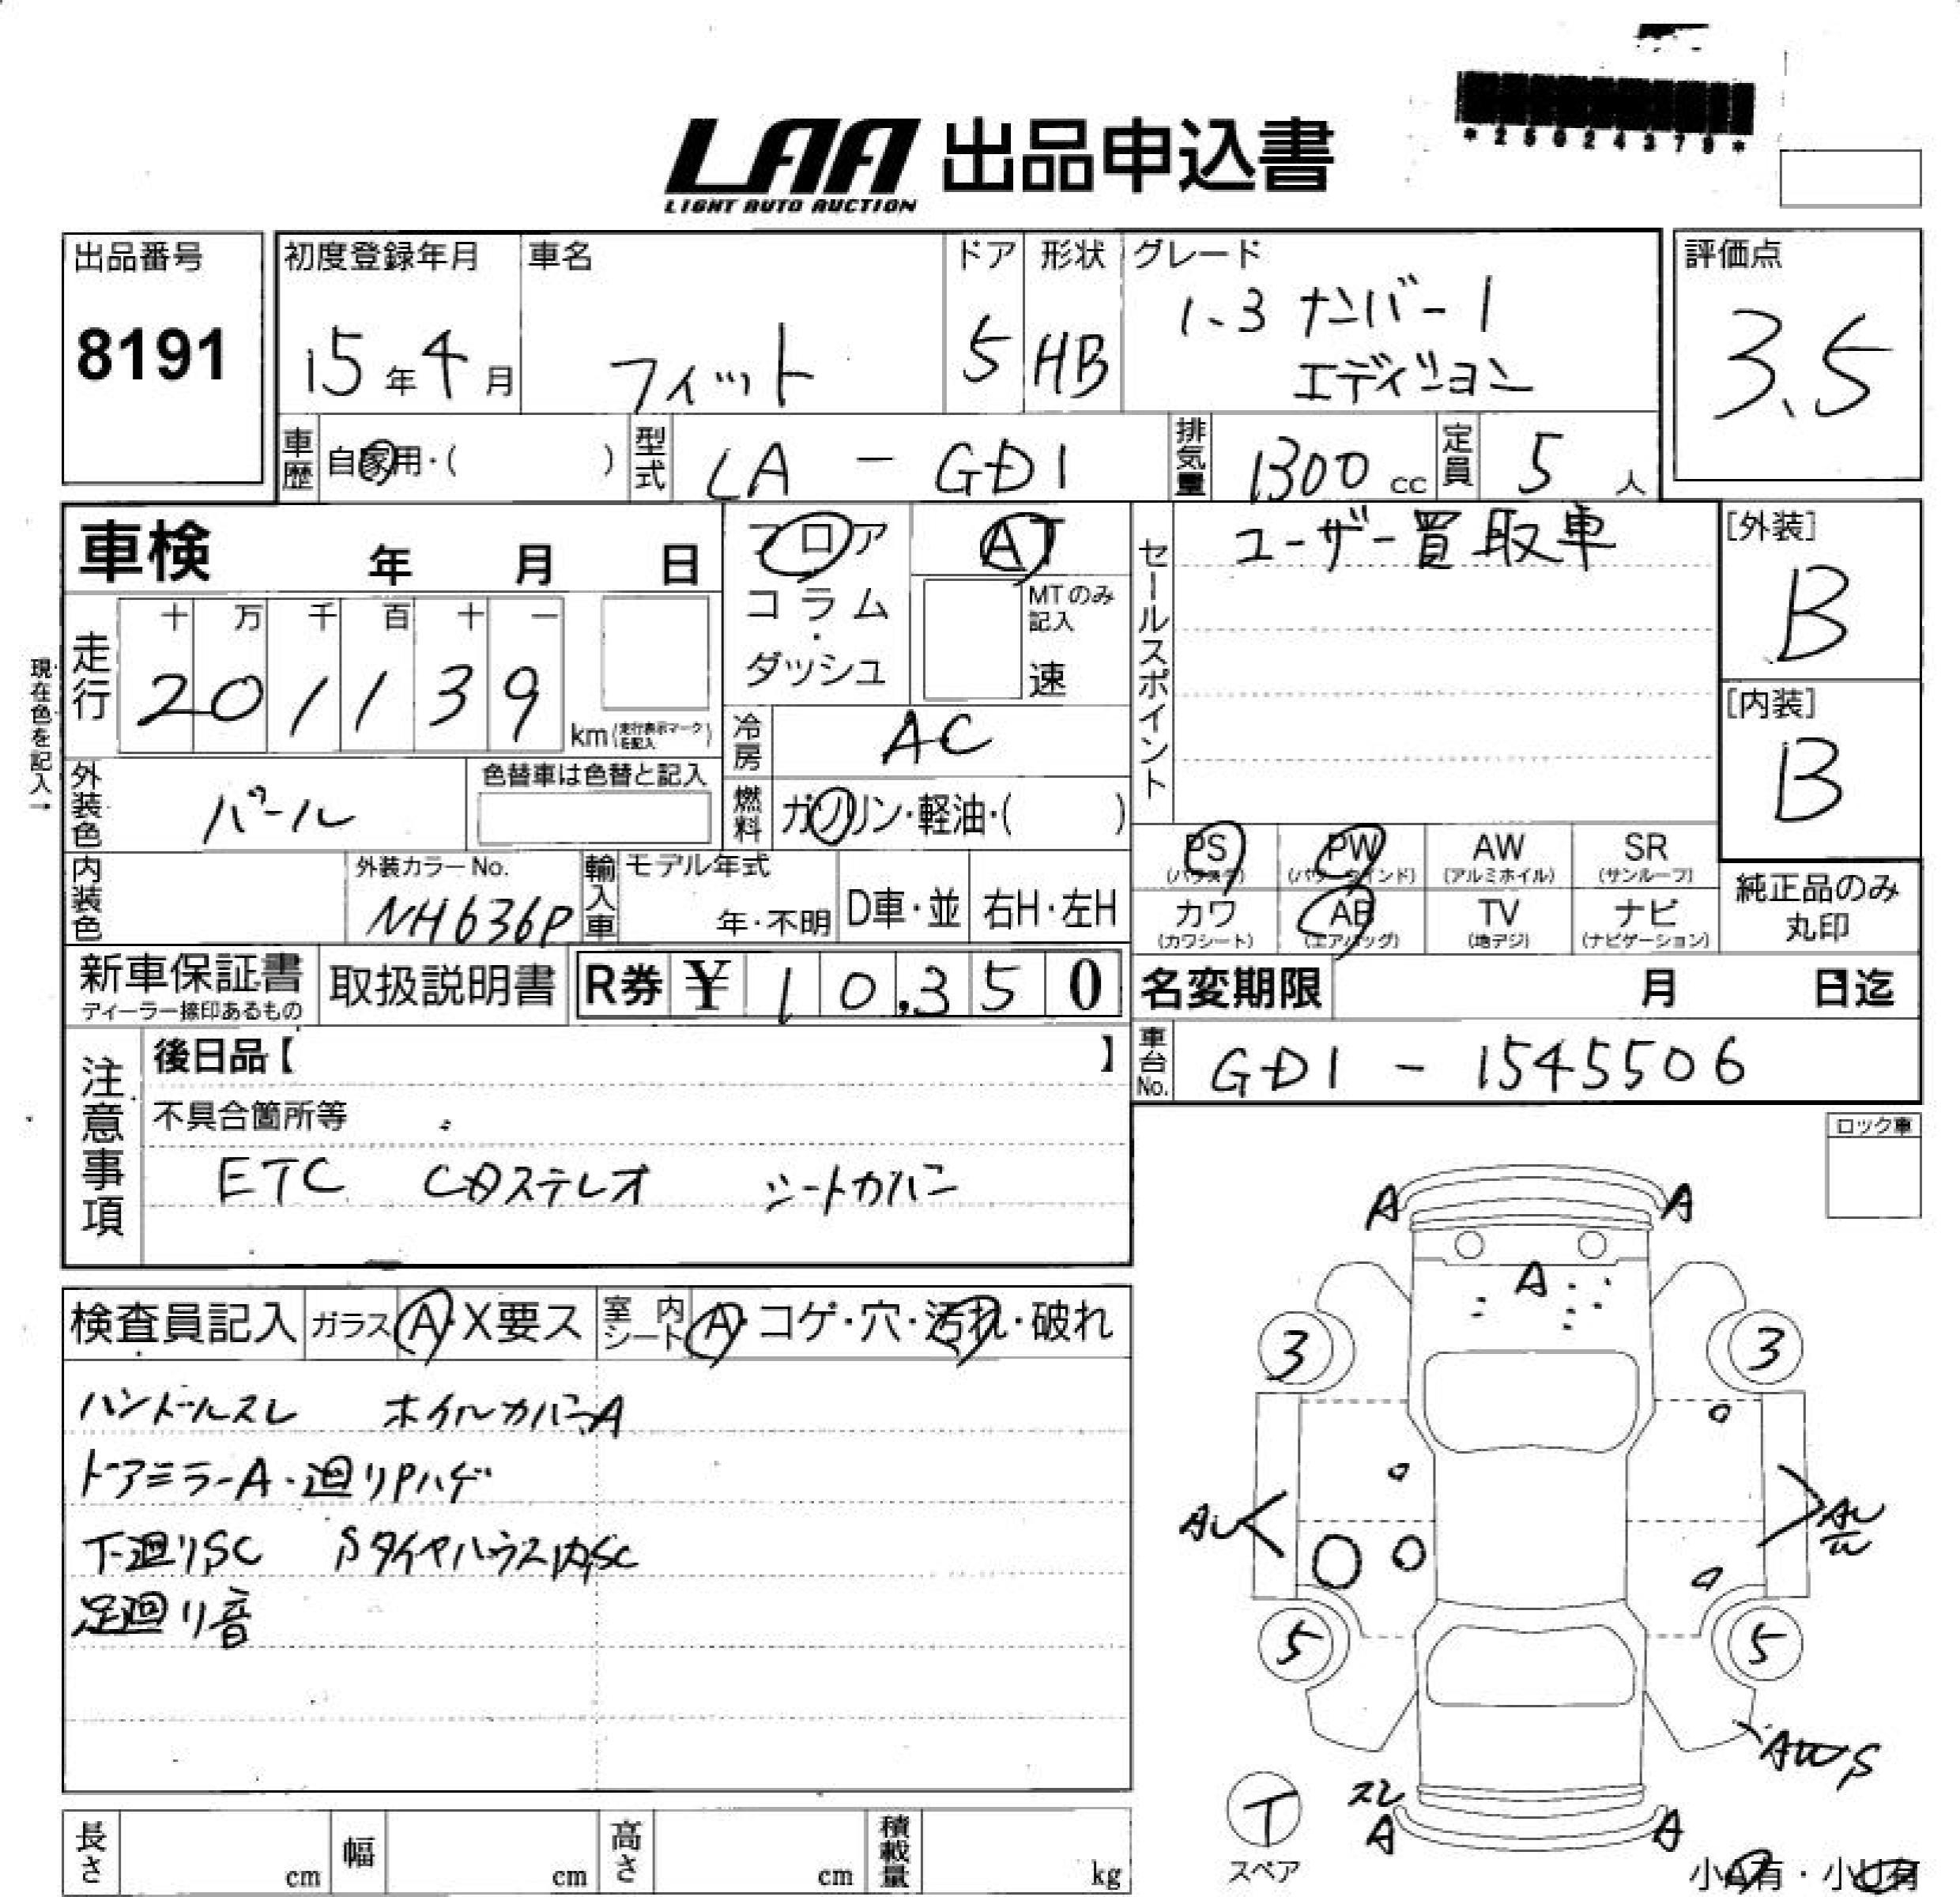 LAA 出品申込書
LIGHT AUTO AUCTION
*25024379*
出品番号
8191
初度登録年月
15年4月
車名
フィット
ドア
5
形状
HB
グレード
1.3 ナンバー1
エディション
評価点
3.5
車歴
自家用・( )
型式
LA - GD1
排気量
1300 cc
定員
5 人
車検 年 月 日
走行
十 万 千 百 十 一
2 0 1 1 3 9
km(走行表示マークを記入)
現在色を記入→
フロア
コラム
・
ダッシュ
AT
MTのみ
記入
速
冷房
AC
燃料
ガソリン・軽油・( )
外装色
パール
色替車は色替と記入
内装色
外装カラーNo.
NH636P
輸入車
モデル年式
年・不明
D車・並
右H・左H
セールスポイント
ユーザー買取車
[外装]
B
[内装]
B
PS
(パワステ)
PW
(パワーウインド)
AW
(アルミホイル)
SR
(サンルーフ)
カワ
(カワシート)
AB
(エアバッグ)
TV
(地デジ)
ナビ
(ナビゲーション)
純正品のみ
丸印
新車保証書
ディーラー捺印あるもの
取扱説明書
R券 ¥ 10,350
名変期限 月 日迄
車台No.
GD1 - 1545506
注意事項
後日品【 】
不具合箇所等
ETC CDステレオ シートカバー
ロック車
検査員記入
ガラス A・X要ス
室内シート A・コゲ・穴・汚れ・破れ
ハンドルスレ ホイルカバーA
ドアミラーA・廻りPハゲ
下廻りSC Sタイヤハウス内SC
足廻り音
A A
A
3 3
AU
AU
5 5
S
スレ
A A
T
スペア
小A有・小U有
長さ cm
幅 cm
高さ cm
積載量 kg